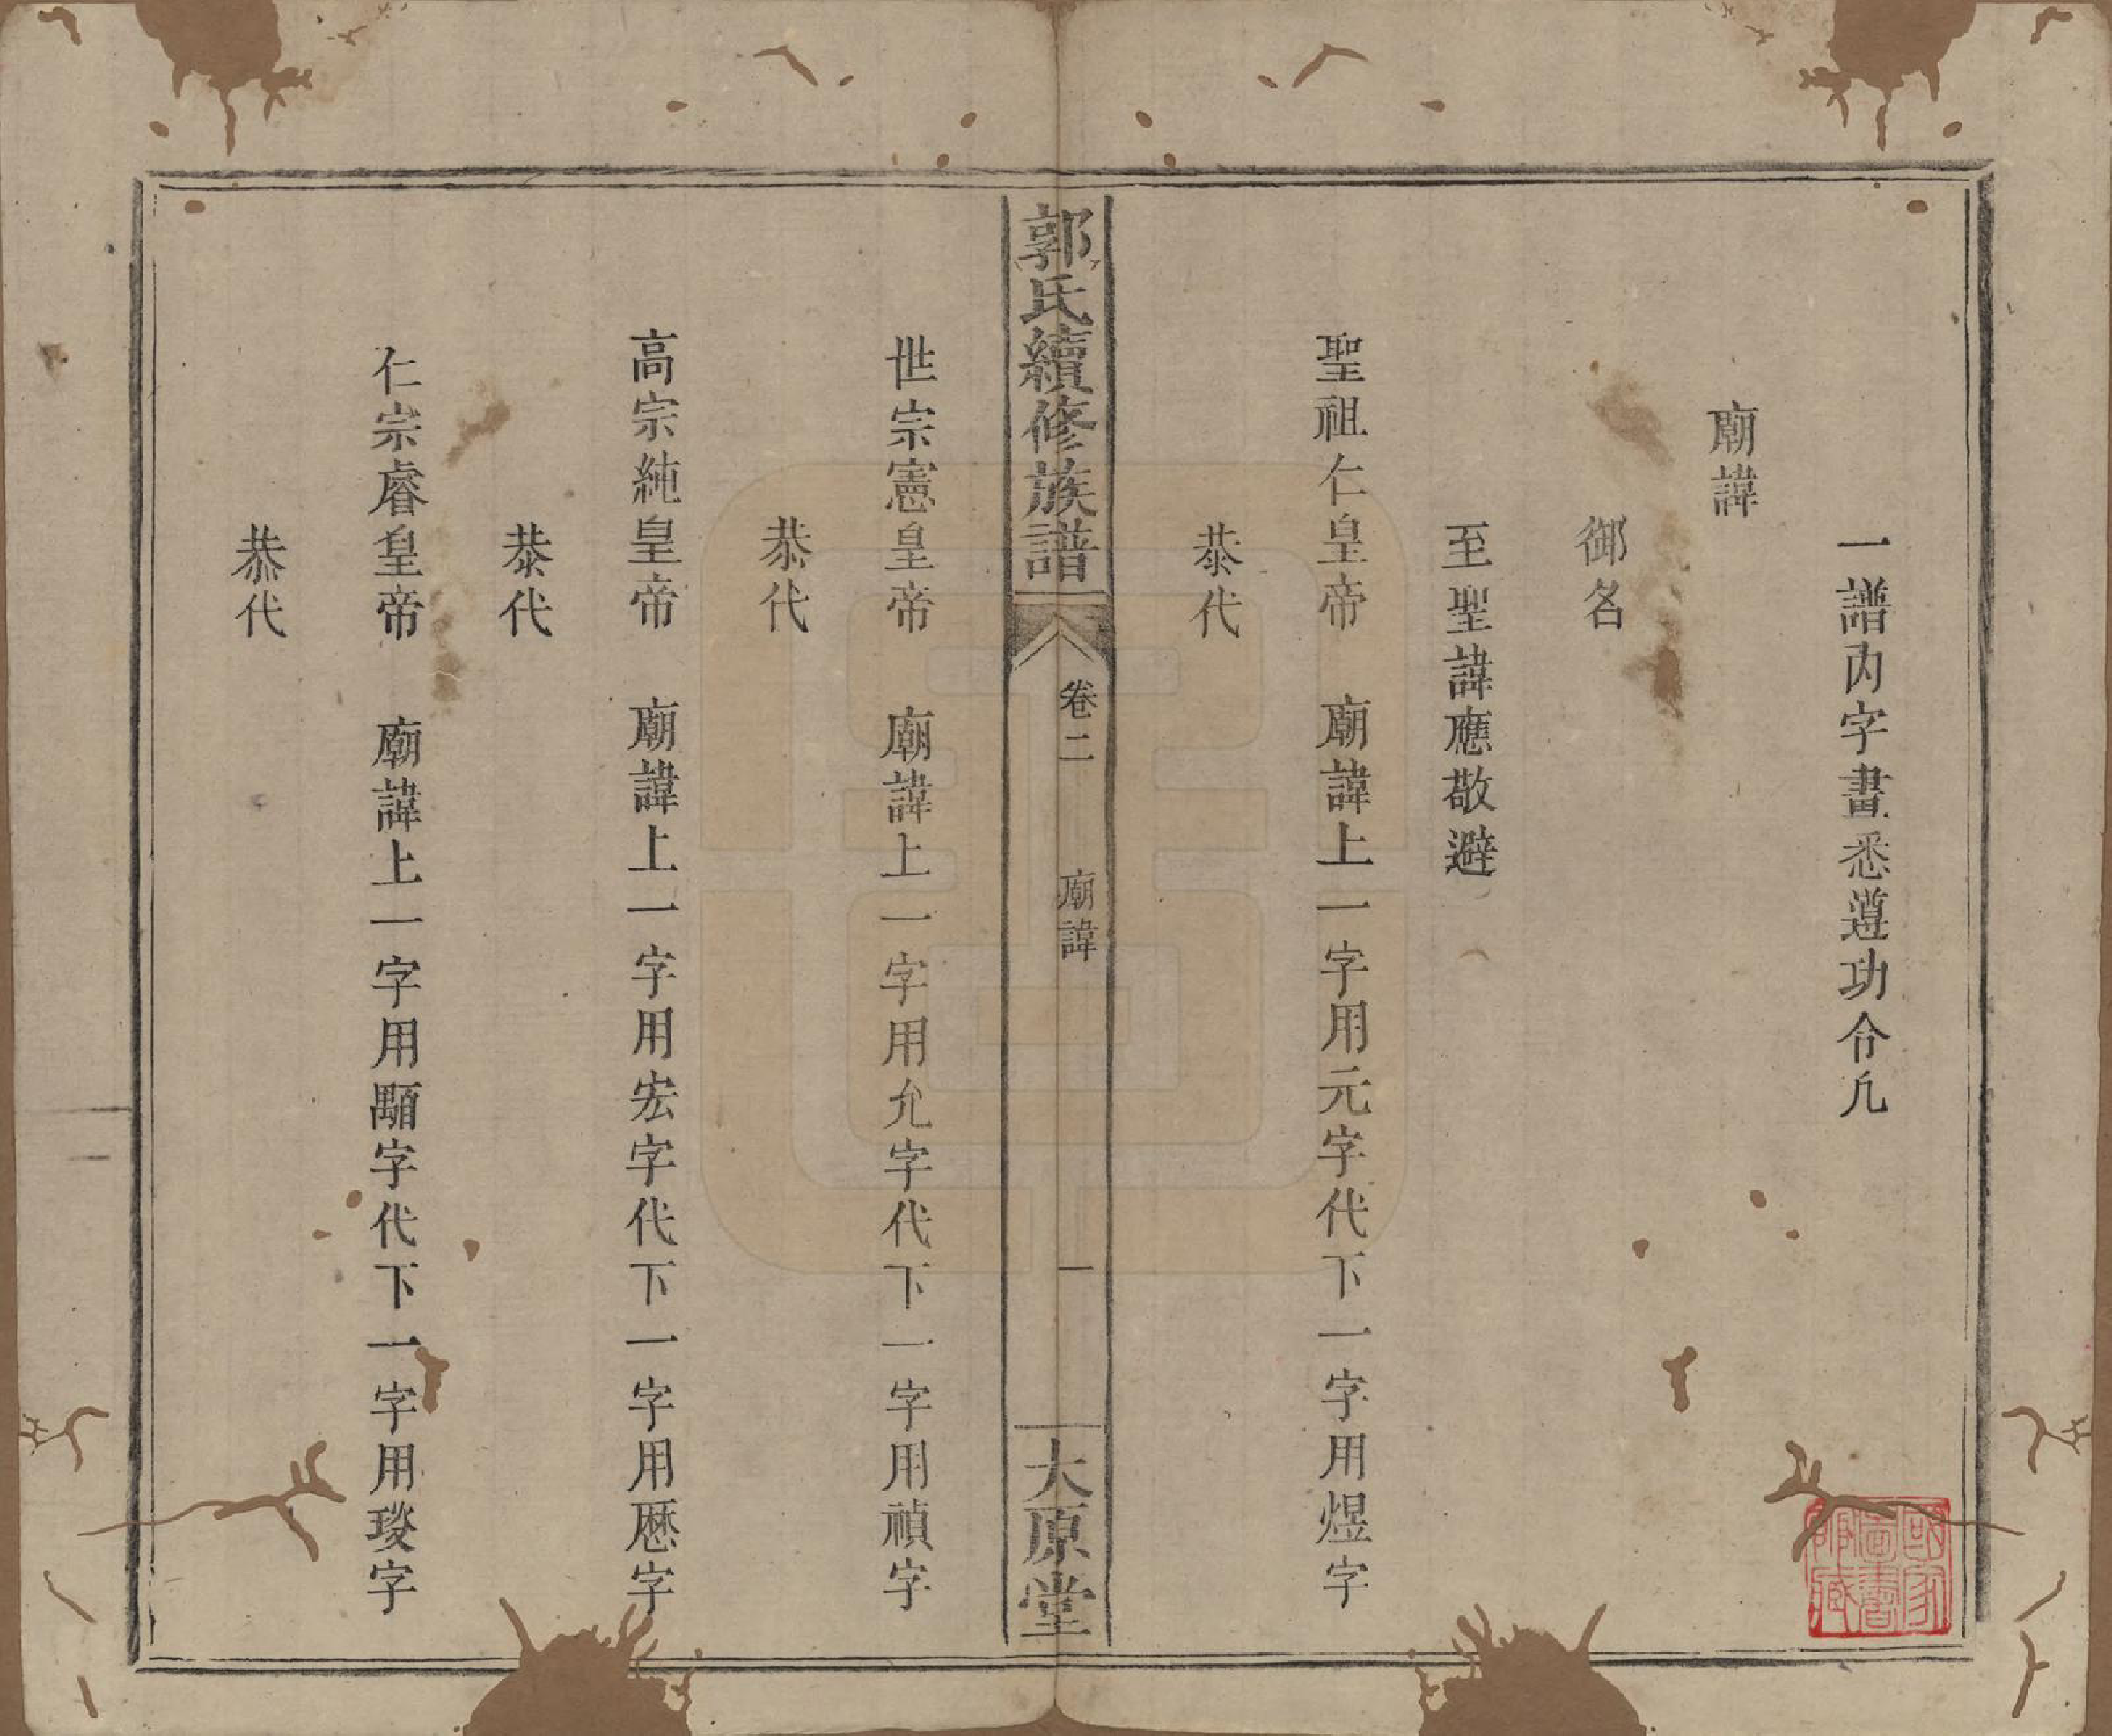 一譜内字畫悉遵功令凡
廟諱
御名
至聖諱應敬避
聖祖仁皇帝 廟諱上一字用元字代下一字用煜字
恭代
郭氏續修族譜 卷二 廟諱 一 大原堂
世宗憲皇帝 廟諱上一字用允字代下一字用禎字
恭代
高宗純皇帝 廟諱上一字用宏字代下一字用厯字
恭代
仁宗睿皇帝 廟諱上一字用顒字代下一字用琰字
恭代
國家圖書館藏